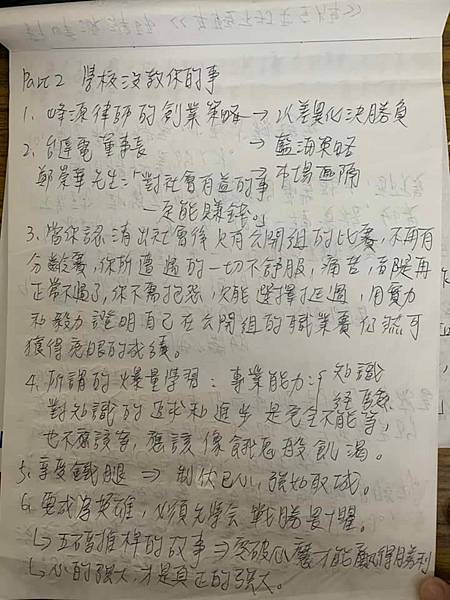 Part 2 學校沒教你的事
1. 峰源律師的創業策略 → 以差異化決勝負
2. 台達電董事長 → 藍海策略
鄭崇華先生:「對社會有益的事 → 市場區隔
一定能賺錢。」
3. 當你認清出社會後只有公開組的比賽,不再有
分齡賽,你所遭遇的一切不舒服,痛苦,都是再
正常不過了,你不需抱怨,只能選擇超過,用實力
和毅力證明自己在公開組的職業賽仍然可
獲得亮眼的成績。
4. 所謂的爆量學習:事業能力:{知識
經驗
對知識的追求和進步是完全不能等,
也不應該客,應該像餓鬼般飢渴。
5. 享受鐵腿 ⇒ 制伏己心,強如取城。
6. 要成為英雄,必須先學會戰勝畏懼。
↳ 五百推桿的故事 ⇒ 突破心魔才能贏得勝利
↳ 心的強大,才是真正的強大。